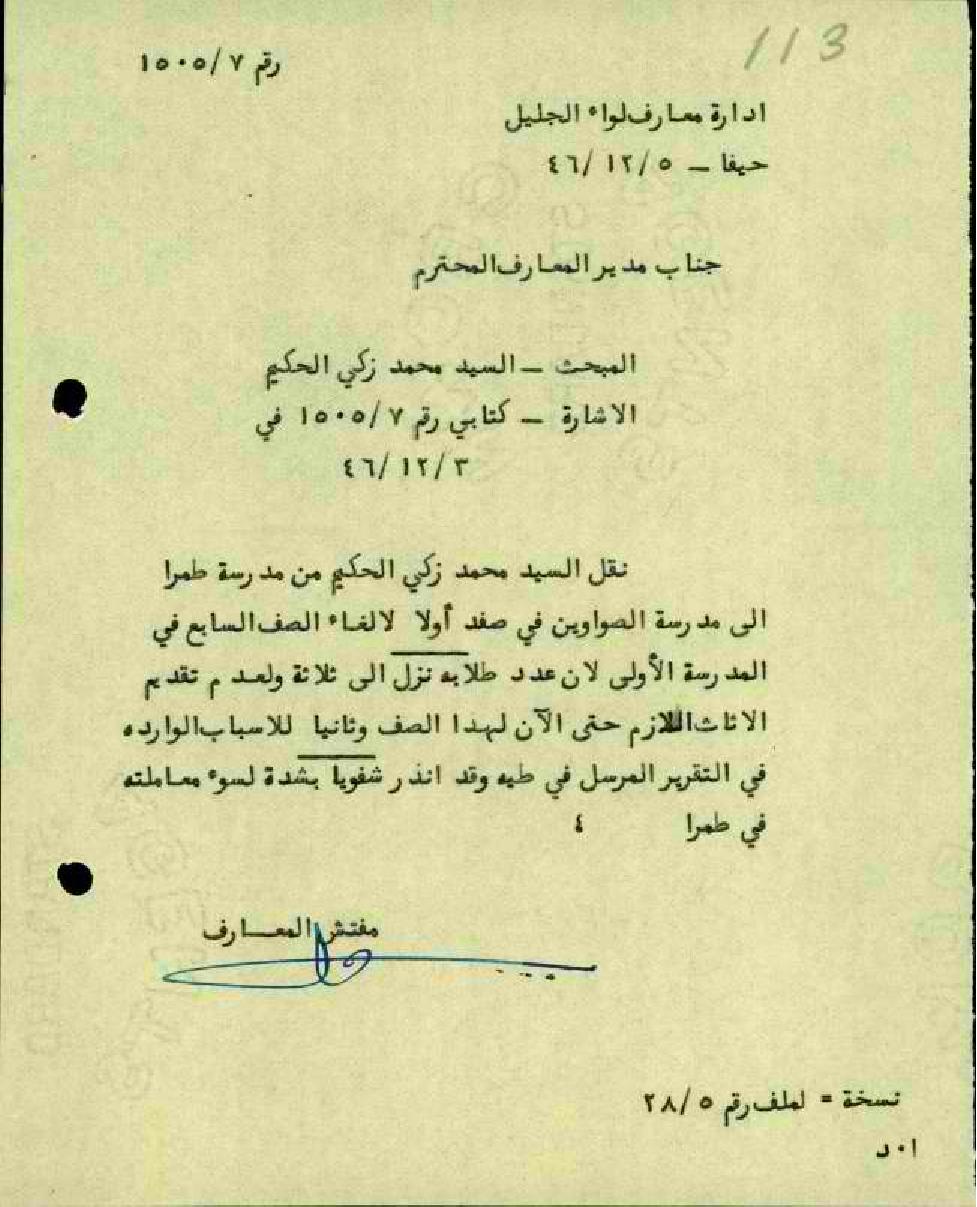 113
رقم ٧/١٥٠٥
ادارة معارف لواء الجليل
حيفا – ٤٦/١٢/٥
جناب مدير المعارف المحترم
المبحث – السيد محمد زكي الحكيم
الاشارة – كتابي رقم ٧/١٥٠٥ في
٤٦/١٢/٣
نقل السيد محمد زكي الحكيم من مدرسة طمرا
الى مدرسة الصواوين في صفد أولا لالغاء الصف السابع في
المدرسة الأولى لان عدد طلابه نزل الى ثلاثة ولعدم تقديم
الاثاث اللازم حتى الآن لهذا الصف وثانيا للاسباب الوارده
في التقرير المرسل في طيه وقد انذر شفويا بشدة لسوء معاملته
في طمرا ٤
مفتش المعــارف
نسخة = لملف رقم ٢٨/٥
ا٠د